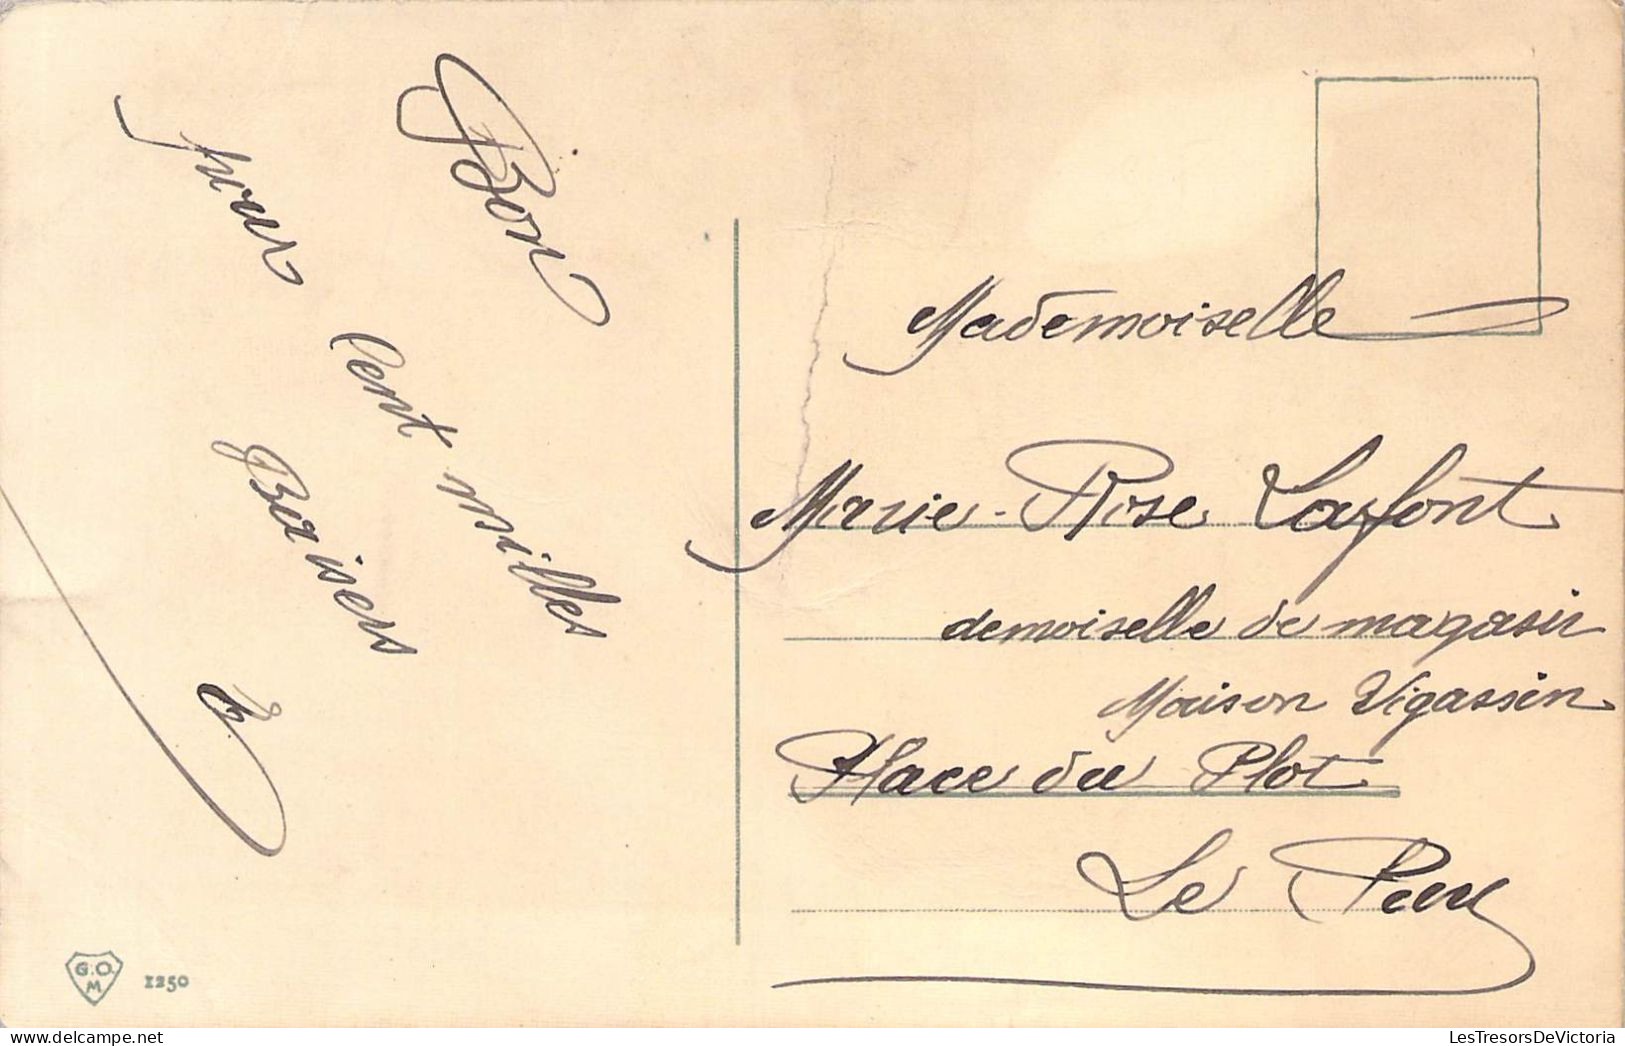 Bon
jour
Cent milles
Baisers
Mademoiselle
Marie-Rose Lafont
demoiselle de magasin
Maison Vigassin
Place du Plot
Le Puy
G.O.
M
1250
LesTresorsDeVictoria